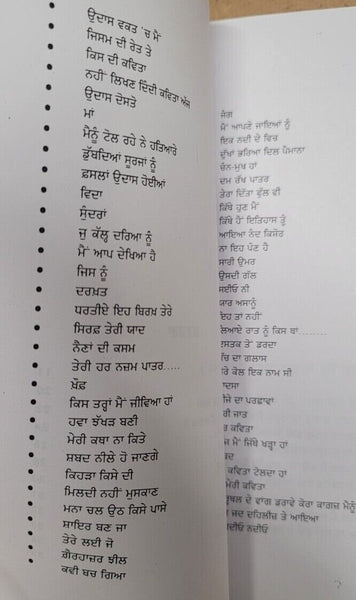 ਉਦਾਸ ਵਕਤ 'ਚ ਮੈਂ
ਜਿਸਮ ਦੀ ਰੇਤ ਤੇ
ਕਿਸ ਦੀ ਕਵਿਤਾ
ਨਹੀਂ ਲਿਖਣ ਦਿੰਦੀ ਕਵਿਤਾ ਅੱਜ
ਉਦਾਸ ਦੋਸਤੋ
ਮਾਂ
ਮੈਨੂੰ ਟੋਲ ਰਹੇ ਨੇ ਹਤਿਆਰੇ
ਡੁੱਬਦਿਆਂ ਸੂਰਜਾਂ ਨੂੰ
ਫ਼ਸਲਾਂ ਉਦਾਸ ਹੋਈਆਂ
ਵਿਦਾ
ਸੁੰਦਰਾਂ
ਜੁ ਕੱਲ੍ਹ ਦਰਿਆ ਨੂੰ
ਮੈਂ ਆਪ ਦੇਖਿਆ ਹੈ
ਜਿਸ ਨੂੰ
ਦਰਖ਼ਤ
ਧਰਤੀਏ ਇਹ ਬਿਰਖ਼ ਤੇਰੇ
ਸਿਰਫ਼ ਤੇਰੀ ਯਾਦ
ਨੈਣਾਂ ਦੀ ਕਸਮ
ਤੇਰੀ ਹਰ ਨਜ਼ਮ ਪਾਤਰ.....
ਖ਼ੌਫ਼
ਕਿਸ ਤਰ੍ਹਾਂ ਮੈਂ ਜੀਵਿਆ ਹਾਂ
ਹਵਾ ਝੱਖੜ ਬਣੀ
ਮੇਰੀ ਕਥਾ ਨਾ ਕਿਤੇ
ਸ਼ਬਦ ਨੀਲੇ ਹੋ ਜਾਣਗੇ
ਕਿਹੜਾ ਕਿਸੇ ਦੀ
ਮਿਲਦੀ ਨਹੀਂ ਮੁਸਕਾਣ
ਮਨਾ ਚਲ ਉਠ ਕਿਸੇ ਪਾਸੇ
ਸ਼ਾਇਰ ਬਣ ਜਾ
ਤੇਰੇ ਲਈ ਜੋ
ਗ਼ੈਰਹਾਜ਼ਰ ਝੀਲ
ਕਵੀ ਬਚ ਗਿਆ
ਜੰਗ
ਮੈਂ ਆਪਣੇ ਜਾਇਆਂ ਨੂੰ
ਇਕ ਨਦੀ ਦੇ ਵਿਚ
ਦੁੱਖਾਂ ਭਰਿਆ ਦਿਲ ਪੈਮਾਨਾ
ਚੰਨ-ਮੁਖ ਹਾਂ
ਦਮ ਰੱਖ ਪਾਤਰ
ਤੇਰਾ ਦਿੱਤਾ ਫੁੱਲ ਵੀ
ਕਿੱਥੇ ਹੁਣ ਮੈਂ
ਕਿੱਥੇ ਹੈਂ ਇਤਿਹਾਸ ਤੂੰ
ਆਇਆ ਨੰਦ ਕਿਸ਼ੋਰ
ਨਾ ਇਹ ਪੌਣ ਹੈ
ਸਾਰੀ ਉਮਰ
ਉਸਦੀ ਗੱਲ
ਨੀ
ਯਾਰ ਅਸਾਨੂੰ
ਇਹ ਤਾਂ ਨਹੀਂ
ਰਾਤ ਨੂੰ ਕਿਸ ਥਾਂ........
ਤੋਂ ਡਰਦਾ
ਦਾ ਗਲਾਸ
ਕੋਲ ਇਕ ਨਾਮ ਸੀ
ਦਾ ਪਰਛਾਵਾਂ
ਜਾਤ
ਕਵਿਤਾ
ਮੈਂ ਜਿੱਥੇ ਖੜ੍ਹਾ ਹਾਂ
ਕਵਿਤਾ ਟੋਲਦਾ ਹਾਂ
ਮੇਰੀ ਕਵਿਤਾ
ਦੇ ਵਾਗ ਡਰਾਵੇ ਕੋਰਾ ਕਾਗਜ਼ ਮੈਨੂੰ
ਜਦ ਦਹਿਲੀਜ਼ ਤੇ ਆਇਆ
ਨਦੀਓ